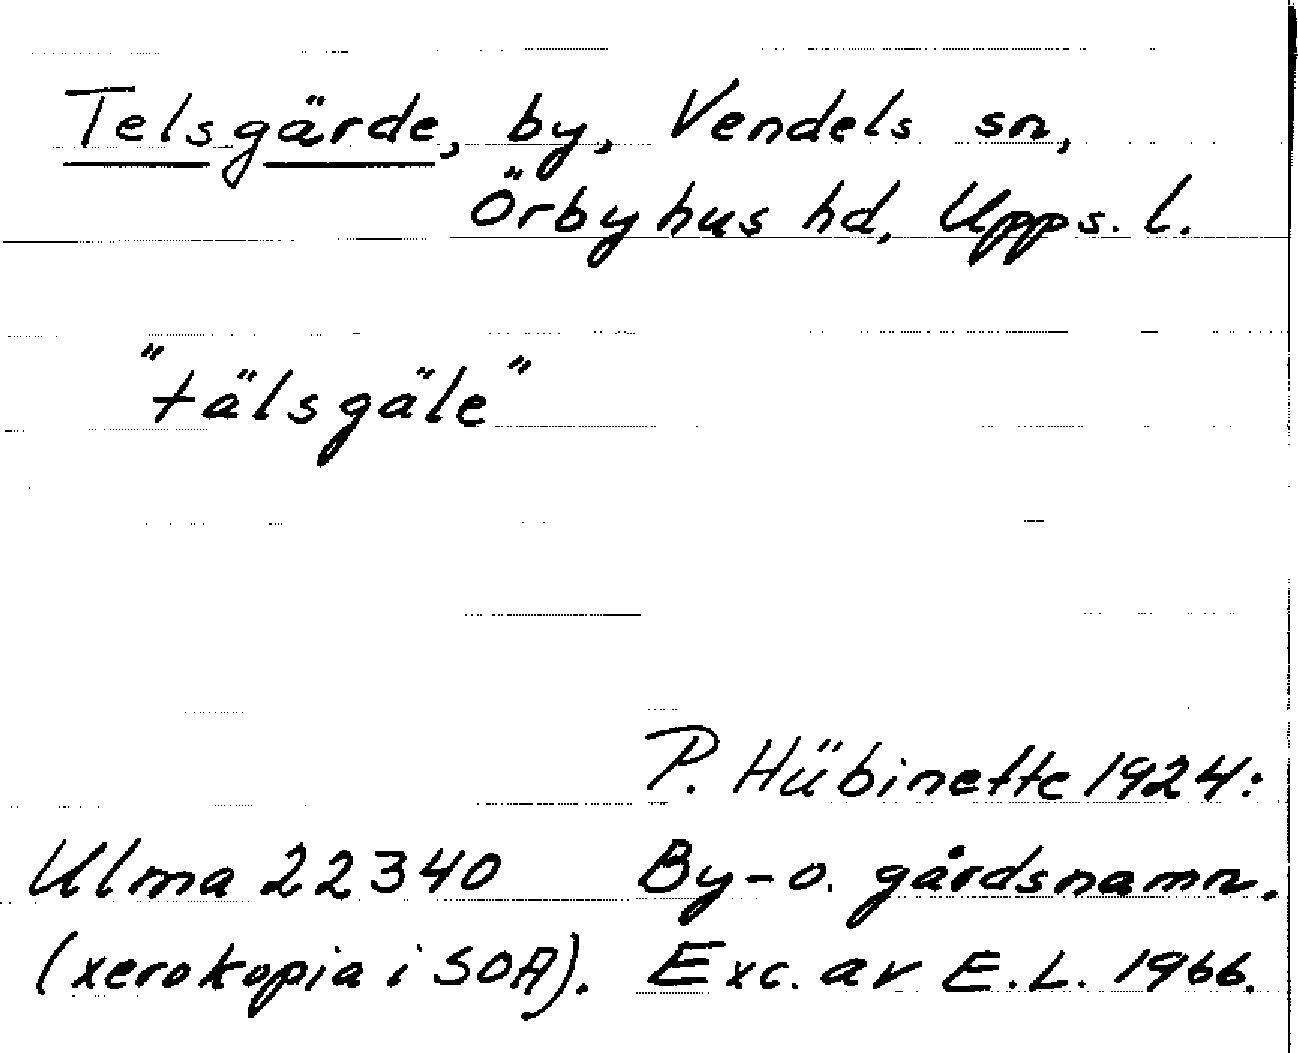 Telsgärde, by, Vendels sn,
Örbyhus hd, Upps. l.
"tälsgäle"
P. Hübinette 1924:
Ulma 22340 By- o. gårdsnamn.
(xerokopia i SOA). Exc. av E.L. 1966.